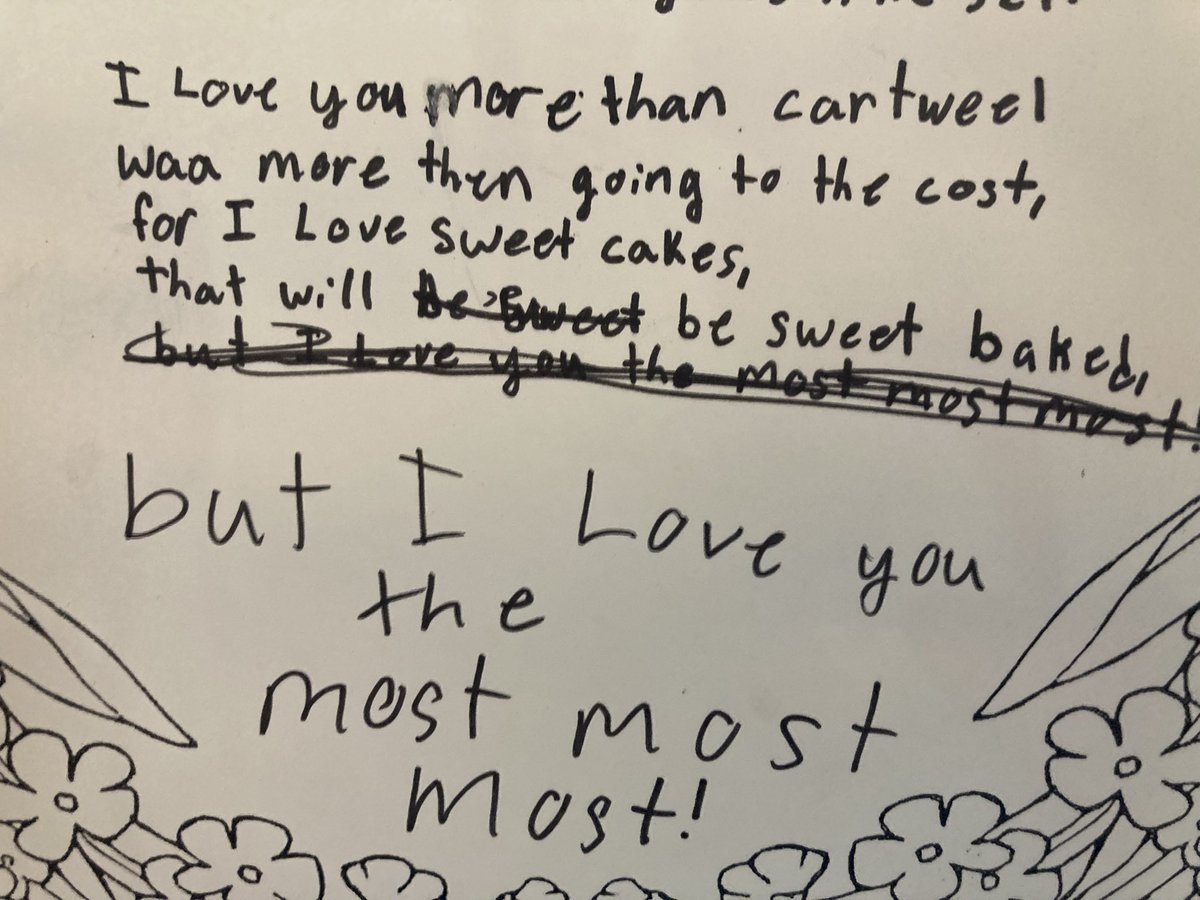 I Love you more than cartweel
waa more then going to the cost,
for I Love sweet cakes,
that will be sweet be sweet baked,
but I Love you the most most most!
but I Love you
the
most most
most!